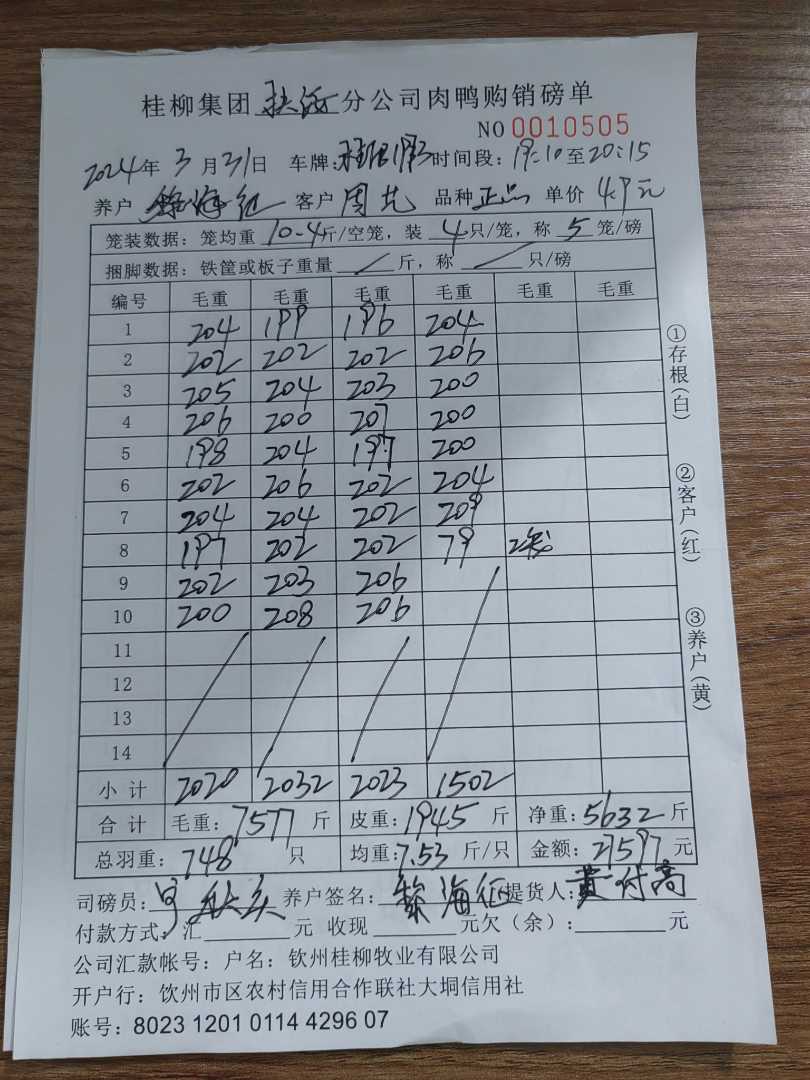 桂柳集团 分公司肉鸭购销磅单
NO 0010505
2024年 3月31日 车牌: 时间段: 19:10至20:15
养户 客户 周 品种 正品 单价 4.9元
笼装数据: 笼均重 10-4斤/空笼, 装 4只/笼, 称 5 笼/磅
捆脚数据: 铁筐或板子重量 / 斤, 称 / 只/磅
编号 毛重 毛重 毛重 毛重 毛重 毛重
1 204 199 196 204
2 202 202 202 206
3 205 204 203 200
4 206 200 207 200
5 198 204 197 200
6 202 206 202 204
7 204 204 202 209
8 197 202 202 79
9 202 203 206
10 200 208 206
11
12
13
14
小计 2020 2032 2023 1502
合计 毛重: 7577 斤 皮重: 1945 斤 净重: 5632 斤
总羽重: 748 只 均重: 7.53 斤/只 金额: 27597 元
司磅员: 养户签名: 海 提货人: 黄付高
付款方式: 汇 元 收现 元欠(余): 元
公司汇款帐号: 户名: 钦州桂柳牧业有限公司
开户行: 钦州市区农村信用合作联社大垌信用社
账号: 8023 1201 0114 4296 07
①存根(白)
②客户(红)
③养户(黄)